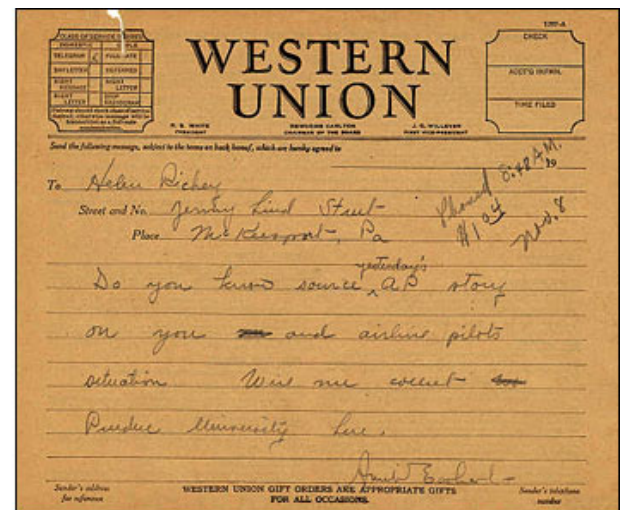 1207-A
CLASS OF SERVICE DESIRED
DOMESTIC
TELEGRAM
FULL RATE
DAY LETTER
DEFERRED
NIGHT MESSAGE
NIGHT LETTER
NIGHT LETTER
SHIP RADIOGRAM
WESTERN
UNION
R. B. WHITE
PRESIDENT
NEWCOMB CARLTON
CHAIRMAN OF THE BOARD
J. C. WILLEVER
FIRST VICE-PRESIDENT
CHECK
ACCT'G INFMN.
TIME FILED
Send the following message, subject to the terms on back hereof, which are hereby agreed to
Phoned 8:48 A.M. 19
Nov. 8
To Helen Richey
Street and No. Jenny Lind Street
Place McKeesport, Pa
Do you know source yesterday's AP story
on you and airline pilots
situation Wire me collect
Purdue University
Amelia Earhart
Sender's address
for reference
WESTERN UNION GIFT ORDERS ARE APPROPRIATE GIFTS
FOR ALL OCCASIONS.
Sender's telephone
number